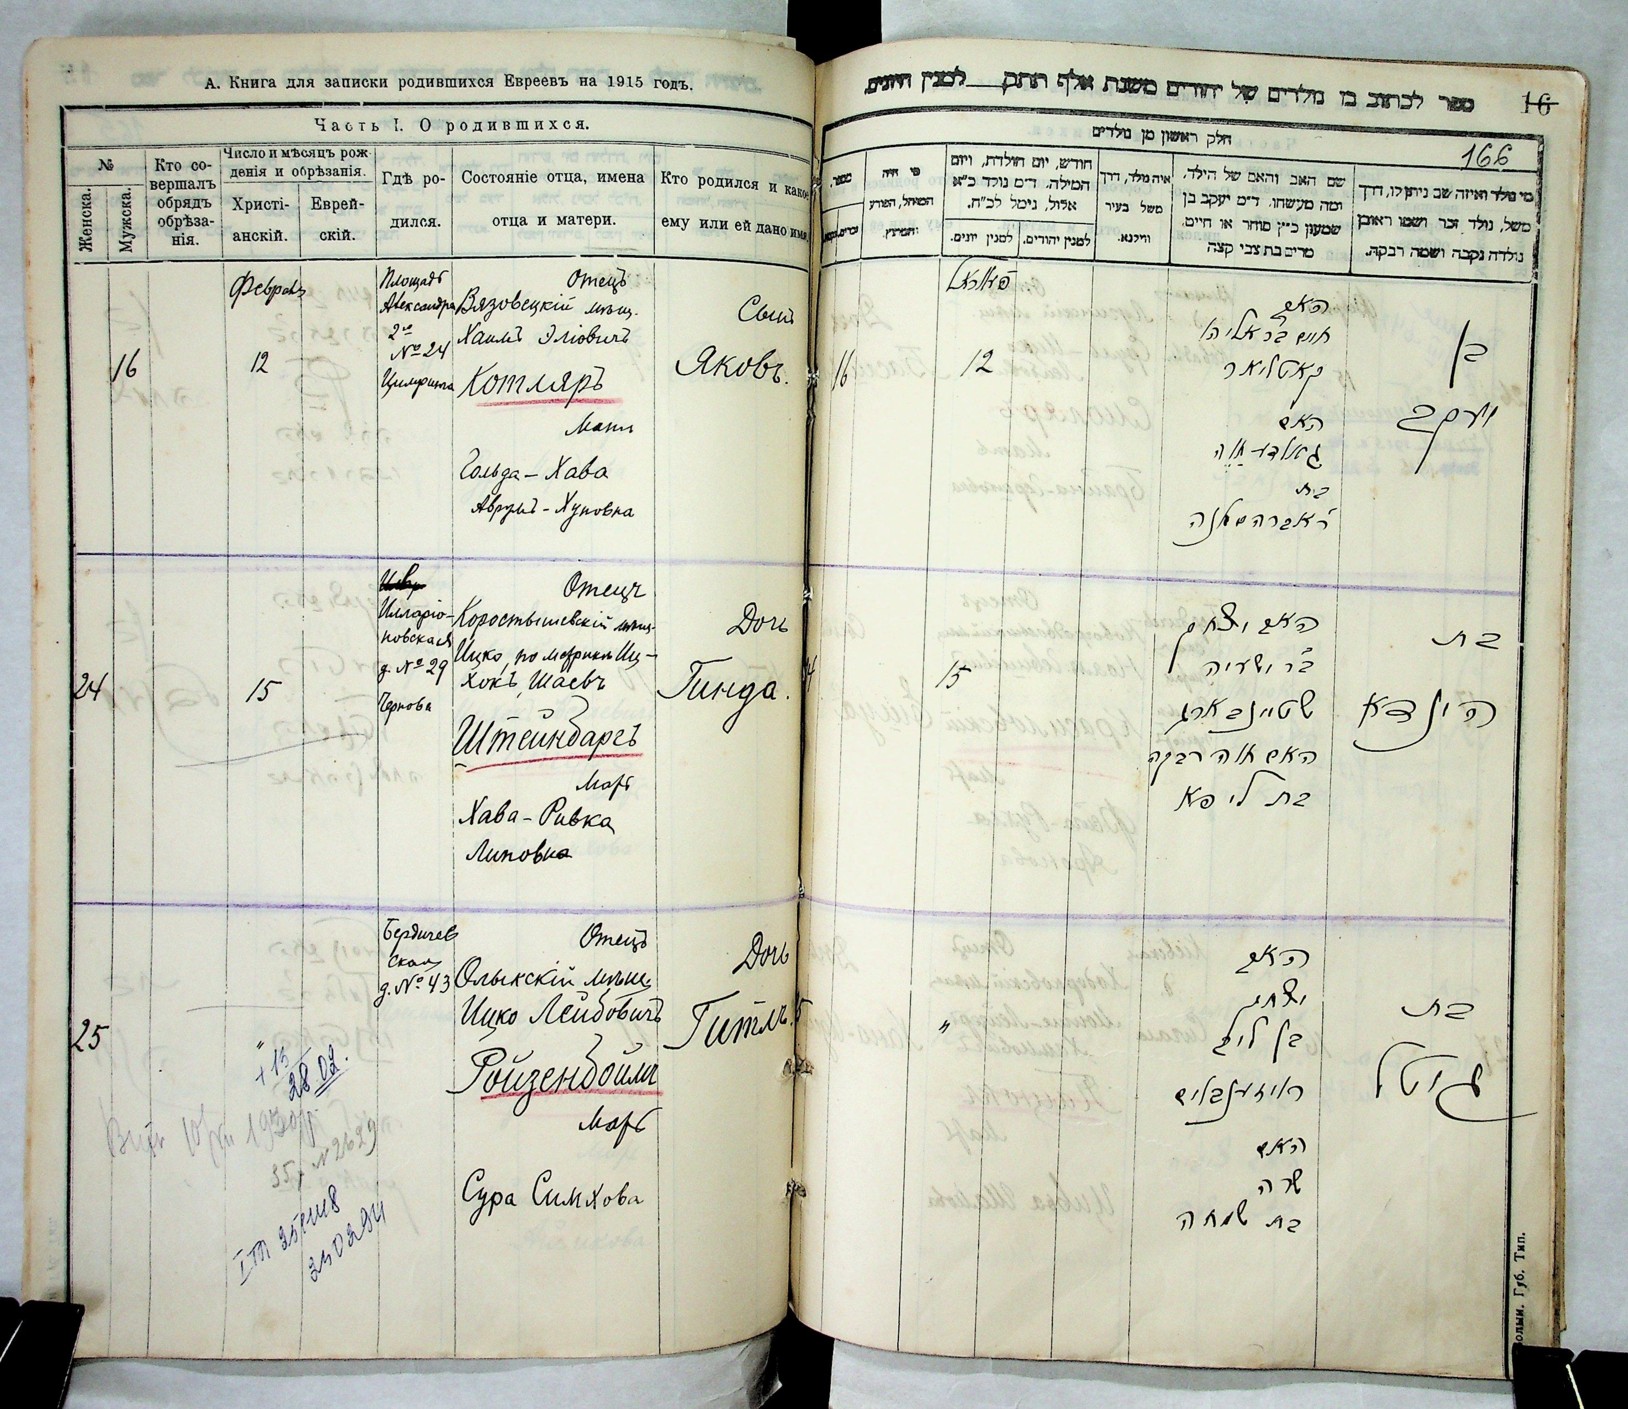 А. Книга для записки родившихся Евреевъ на 1915 годъ.
Часть I. О родившихся.
№
Женска.
Мужска.
Кто со-
вершалъ
обрядъ
обрѣза-
нія.
Число и мѣсяцъ рож-
денія и обрѣзанія.
Христі-
анскій.
Еврей-
скій.
Гдѣ ро-
дился.
Состояніе отца, имена
отца и матери.
Кто родился и какое
ему или ей дано имя.
16
Февраль
12
Площадь
Александра
2го
№ 24
Отецъ
Вязовецкій мѣщ.
Хаимъ Эліовичъ
Котляръ
Мать
Гольда-Хава
Аврумъ-Хуновна
Сынъ
Яковъ.
24
15
Илларіо-
новская
д. № 29
Чернова
Отецъ
Коростышевскій мѣщ.
Ицко, по метрикѣ Иц-
хокъ, Шаевъ
Штейнбаргъ
Мать
Хава-Ривка
Липовна
Дочь
Гинда.
25
"
+ 13
28.02.
10/VII 1930
35 г. № 2629
Бердичев
ская
д. № 43
Отецъ
Олыкскій мѣщ.
Ицко Лейбовичъ
Ройзенбоймъ
Мать
Сура Симхова
Дочь
Гитль.
ספר לכתוב בו נולדים של יהודים משנת אלף תתק לְמנין היונים
16
166
חלק ראשון מן נולדים
מספר.
מי היה
המוהל, הפורע
והמוצץ.
חודש, יום הולדת, ויום
המילה. ד״מ נולד כ״א
אלול, נימל לכ״ח.
למנין יונים.
למנין יהודים.
איה נולד, דרך
משל בעיר
ווילנא.
שם האב והאם של הילד,
ומה מעשהו. ד״מ יעקב בן
שמעון כ״ץ סוחר או חיים.
מרים בת צבי קצה
מי נולד ואיזה שם ניתן לו, דרך
משל, נולד זכר ושמו ראובן
נולדה נקבה ושמה רבקה.
16
12
האב
חיים ב״ר אליהו
קאטליאר
האם
גאלדע חוה
בת
בן
יעקב
15
האב יצחק
ב״ר ישעיה
שטיינבארג
האם חוה רבקה
בת ליפא
בת
הינדא
"
האב
יצחק
בן ליב
רויזענבוים
האם
שרה
בת שמחה
בת
גיטל
олын. Губ. Тип.